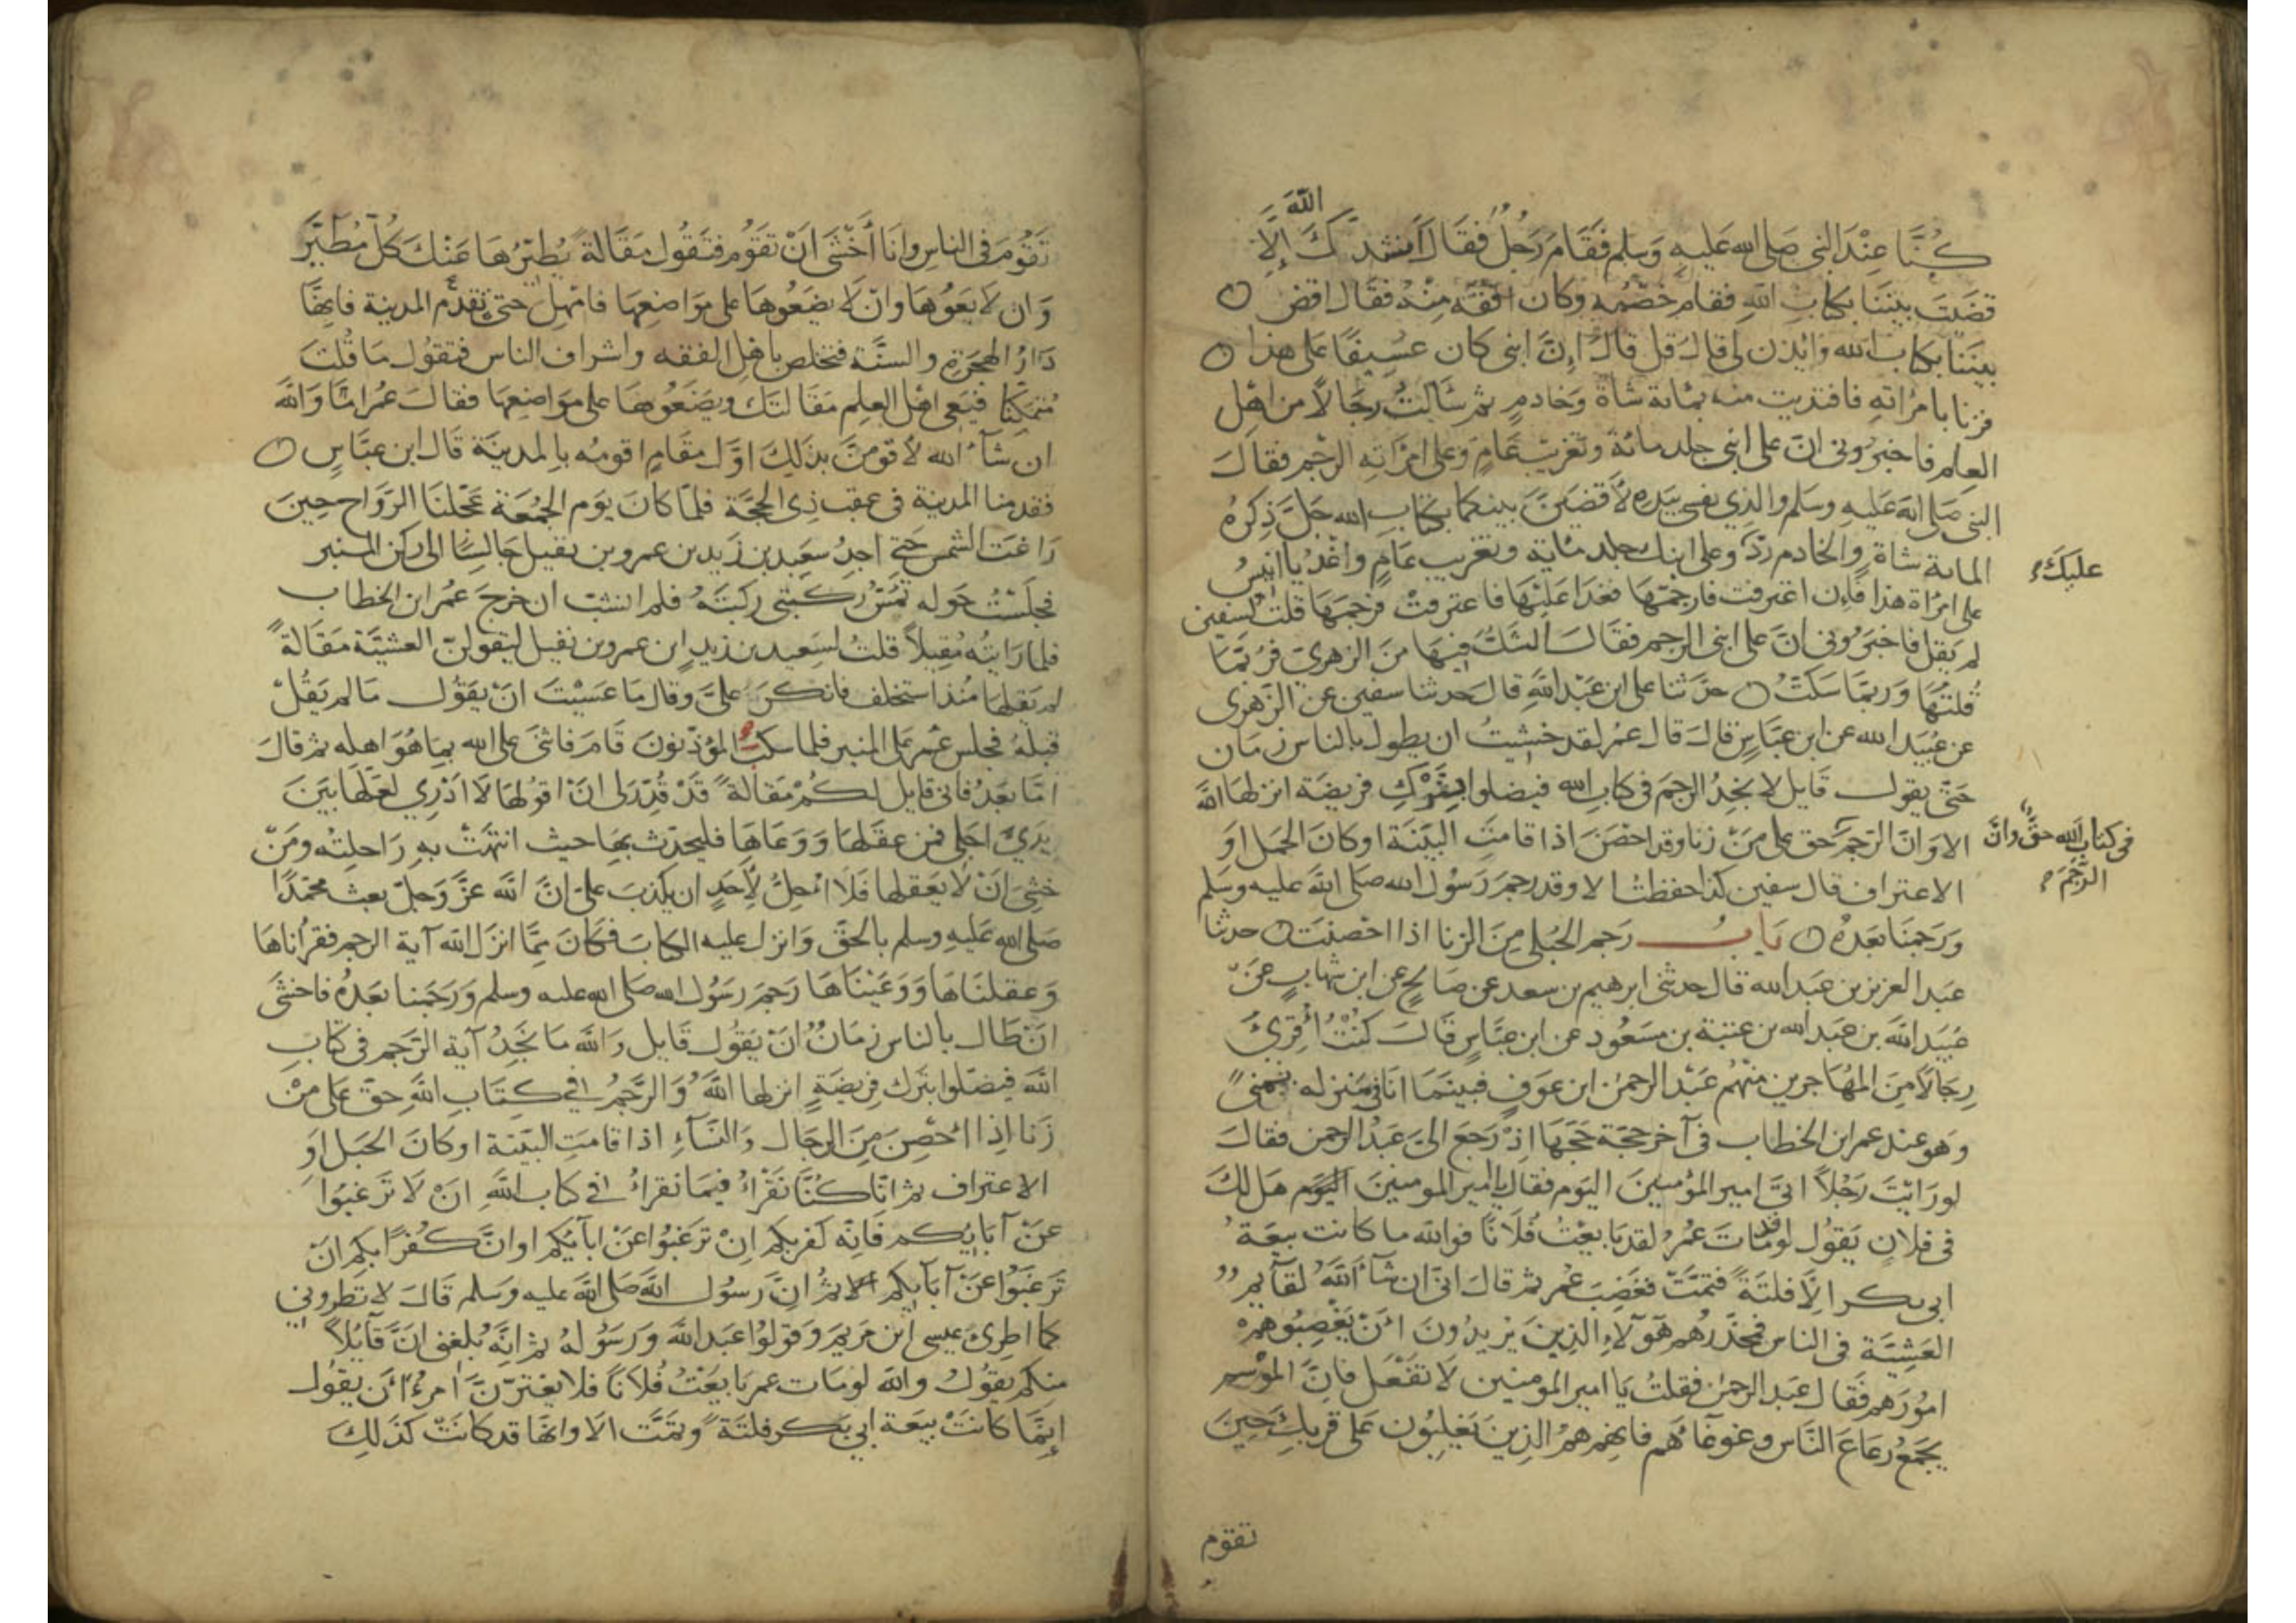 الله
كُنَّا عِنْدَ النبي صَلى الله عَليهِ وَسَلم فَقَامَ رَجُلٌ فقَالَ اَنشدُكَ إلاَّ
قضَيتَ بيْننَا بكتابِ الله فقام خصْمُه وكان افْقَهَ مِنْهُ فقَال اقضِ
بينَنَا بكتاب الله وائذن لي قال قل قالَ إنَّ ابني كان عَسِيفًا عَلى هذا
فزنا بامرَاتهِ فافتديت منه بمائة شاة وَخادمٍ ثم سَالتُ رجَالاً من اهْلِ
العلم فاخبرُوني انّ على ابني جلد مائة وتغريبَ عَامٍ وَعلى امرَاتِهِ الرجْم فقالَ
النبي صَلى الله عَليهِ وسَلم والذِي نفسي بيَده لأقضيَنَّ بينكما بكتابِ الله جَلَّ ذِكرُهُ
المائة شاة والخادم ردّ وعلى ابنك جلد مائة وتغريب عَامٍ واغْدُ يا انيسُ
عليكَ
على امرَاة هذا فإن اعترفت فارجمْهَا فغدَا عَليْهَا فاعترفتْ فرجمَهَا قلتُ لسفين
لم يَقل فاخبَرُوني انَّ على ابني الرجم فقَالَ الشكُّ فيهَا منَ الزهريّ فرُبّمَا
قُلتهَا وَربمَّا سَكتُّ حدَّثنا على ابن عَبْد اللهِ قالَ حدثنا سفين عن الزّهرى
عن عُبَيد الله عن ابن عبَّاسٍ قالَ قال عُمَر لقد خشيتُ ان يطول بالناس زمَان
حَتّى يقولَ قايل لا نجدُ الرجمَ في كتاب الله فيضلوا بِتَرْكِ فريضَة انزلهَا اللهُ
الا وَانّ الرّجمَ حق على مَنْ زنا وقد احْصَنَ اذا قامتِ البيّنَة او كانَ الحَمل اوَ
في كتاب الله حقّ وانّ
الرَّجْمَ
الاعتراف قال سفين كذا حفظتُ الا وقد رجمَ رَسُولُ الله صلى الله عَليه وسَلم
وَرَجمنَا بَعدَهُ بَابُ رَجم الحُبْلى مِنَ الزنا اذا احْصنَت حدثنا
عَبد العزيز بن عَبد الله قال حدثني ابرهيم بن سعد عن صَالحٍ عن ابن شهابٍ عَنْ
عُبَيد الله بن عَبد الله بن عتبة بن مسَعُود عن ابن عبَّاسٍ قالَ كنْتُ أُقرِئُ
رِجَالاً مِنَ المهَاجرين منْهُم عَبْد الرحمن ابن عَوفٍ فبينمَا انا في مَنزله بمنىً
وَهو عند عمر ابن الخطاب في آخر حجّة حَجّهَا اذْ رَجعَ اليَّ عَبْد الرحمن فقالَ
لو رَايْتَ رَجُلاً اتَى امير المؤمنينَ اليَوم فقال يا امير المومنينَ اليَوم هَل لكَ
في فلانٍ يَقُولُ لو قد مَاتَ عُمَر لقد بَايعْتُ فُلاَنًا فوالله ما كانت بيعَةُ
ابي بكر الاَّ فلتَةً فتمَّتْ فغضِبَ عُمر ثم قالَ انّى ان شآءَ اللهُ لقآيمٌ
العَشيَّةَ في الناس فمحذّرهُم هَؤلآءِ الذِينَ يُريدُونَ انْ يَغصِبُوهم
امُورَهم فقَال عَبد الرحمن فقلتُ يَا امير المومنين لا تفْعَل فانّ الموْسم
يجمَعُ رعَاعَ النَّاس وغوغَآءَهم فانهم همُ الذِينَ يَغلِبُون عَلى قربكِ حِينَ
تقوم
تَقُوْمَ في الناس وانَا أَخْشَى انْ تقوُم فتقُول مَقَالةً يُطيّرُهَا عَنْكَ كلُّ مُطَيِّرٍ
وَان لاَ يَعُوهَا وانْ لاَ يضَعُوهَا على مَوَاضعِهَا فامْهِل حتى تقدُمَ المدينة فانهَّا
دَارُ الهِجرَةِ والسنَّة فتخلص بأهل الفقه واشراف الناس فتقولُ مَا قُلتَ
مُتمكنًا فيَعى اهْل العِلم مَقَالتَكَ ويَضَعُوهَا على مَوَاضعِهَا فقالَ عُمَر امَّا وَاللهِ
ان شَآءَ الله لأقومَنَّ بذلكَ اوّلَ مقَامٍ اقومُه بالمدينَة قَال ابن عبَّاسٍ
فقدمنا المدينة في عقب ذِى الحجَّة فلمَّا كانَ يَوم الجُمعَة عَجّلنَا الرَّوَاح حِينَ
زَاغتِ الشمس حَتى اجدُ سعَيد بن زَيد بن عمرو بن نفيل جَالسًا الى ركن المنبر
فجلَسْتُ حَوله تمَسُّ ركبتي ركبَتَهُ فلم انشبْ ان خرَجَ عمَر ابن الخطاب
فلما رَايتُه مُقبلاً قلتُ لسَعيد بن زيدٍ ابن عمرو بن نفيل ليَقولنّ العشيَّة مَقَالةً
لم يَقلهَا مُنذ استخلف فانكرَ عليَّ وقال مَا عَسَيْتَ انْ يقَوُل مَا لم يَقُلْ
قبلَهُ فجلس عُمر عَلى المنبر فلما سكتَ المؤذّنونَ قامَ فاثنى على الله بمَا هُوَ اهله ثم قالَ
امّا بعَدُ فاني قايل لكُمْ مَقالةً قَدْ قُدّرَ لي انْ اقولهَا لاَ ادْرِي لعَلّهَا بَينَ
يَدَيْ اجَلي فمن عقَلهَا وَوَعَاهَا فليحَدّث بهَا حيث انتهَتْ بهِ رَاحلتُه ومَنْ
خشِيَ انْ لا يَعقلها فَلاَ احُلُّ لأَحَدٍ ان يَكذبَ عَليَّ انَّ اللهَ عَزَّ وَجلَّ بعثَ محَمَّدًا
صَلى الله عَليهِ وسلم بالحَقّ وَانزلَ عليه الكتابَ فكانَ ممّا انزَلَ الله آية الرجم فقرأناهَا
وَعقلنَاهَا وَوَعَيْنَاهَا رَجمَ رَسُول الله صَلى الله عليه وسلم وَرَجَمنا بَعدَهُ فاخشَى
انْ طَالَ بالناس زمَانٌ انْ يَقُولَ قايل وَاللهِ مَا نجَدُ آية الرّجم في كتابِ
الله فيضلّوا بتَرك فريضَةٍ انزلها اللهُ وَالرَّجمُ في كتَابِ اللهِ حقّ عَلى مَنْ
زَنا اذَا احْصِنَ مِنَ الرجَال وَالنسَآءِ اذا قامَتِ البيّنة او كانَ الحبَل اوَ
الاعتراف ثم انّا كُنَّا نَقْرَأُ فيمَا نقراءُ في كتاب اللهِ انْ لاَ تَرغبُوا
عنْ آبَايكم فَانّه كفر بكم انْ ترغَبُوا عنْ ابآئكم او انَّ كُفرًا بكم انْ
تَرغبُوا عَنْ آبَايكم الا ثم انَّ رسُول الله صَلى الله عليه وسَلم قالَ لا تطروني
كما اطرِيَ عيسى ابن مَريمَ وَقولُوا عَبد الله وَرسُولهُ ثم انَّه بلغني انَّ قآيلاً
منكم يقُولُ والله لو مَات عمر بَايَعْتُ فُلاَنًا فلا يغترّنَّ امرُءٌ انْ يقُولَ
إنمَّا كانتْ بيعَة ابي بكر فلتَةً وتمَّت الا وانهَا قد كانَتْ كذَلِكَ